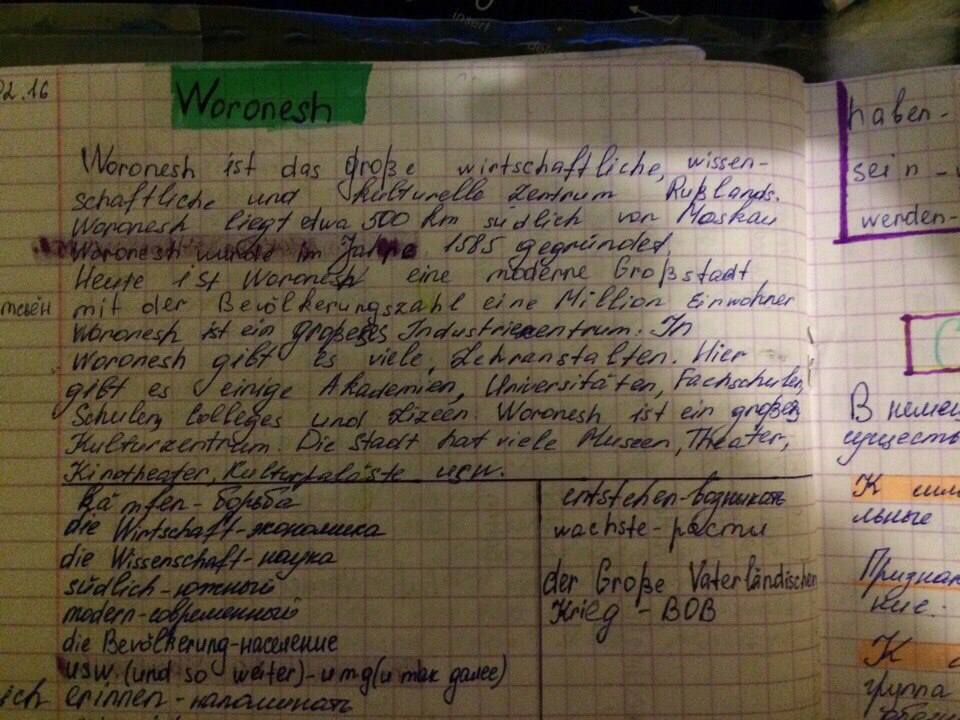 02.16
Woronesh
Woronesh ist das große wirtschaftliche, wissen-
schaftliche und kulturelle Zentrum Rußlands.
Woronesh liegt etwa 500 km südlich von Moskau
Woronesh wurde im Jahre 1585 gegründet.
Heute ist Woronesh eine moderne Großstadt
mit der Bevölkerungszahl eine Million Einwohner
Woronesh ist ein großes Industriezentrum. In
Woronesh gibt es viele Lehranstalten. Hier
gibt es einige Akademien, Universitäten, Fachschulen,
Schulen, Colleges und Lizeen. Woronesh ist ein großes
Kulturzentrum. Die Stadt hat viele Museen, Theater,
Kinotheater, Kulturpaläste usw.
Kämfen - борьба
die Wirtschaft - экономика
die Wissenschaft - наука
südlich - южный
modern - современный
die Bevölkerung - население
usw. (und so weiter) - итд (и так далее)
ich erinnen - напоминать
entstehen - возникать
wachste - расти
der Große Vaterländischen
Krieg - ВОВ
haben -
sein -
werden -
В немец
существ
К сил
льные
Признак
ние.
К с
группа